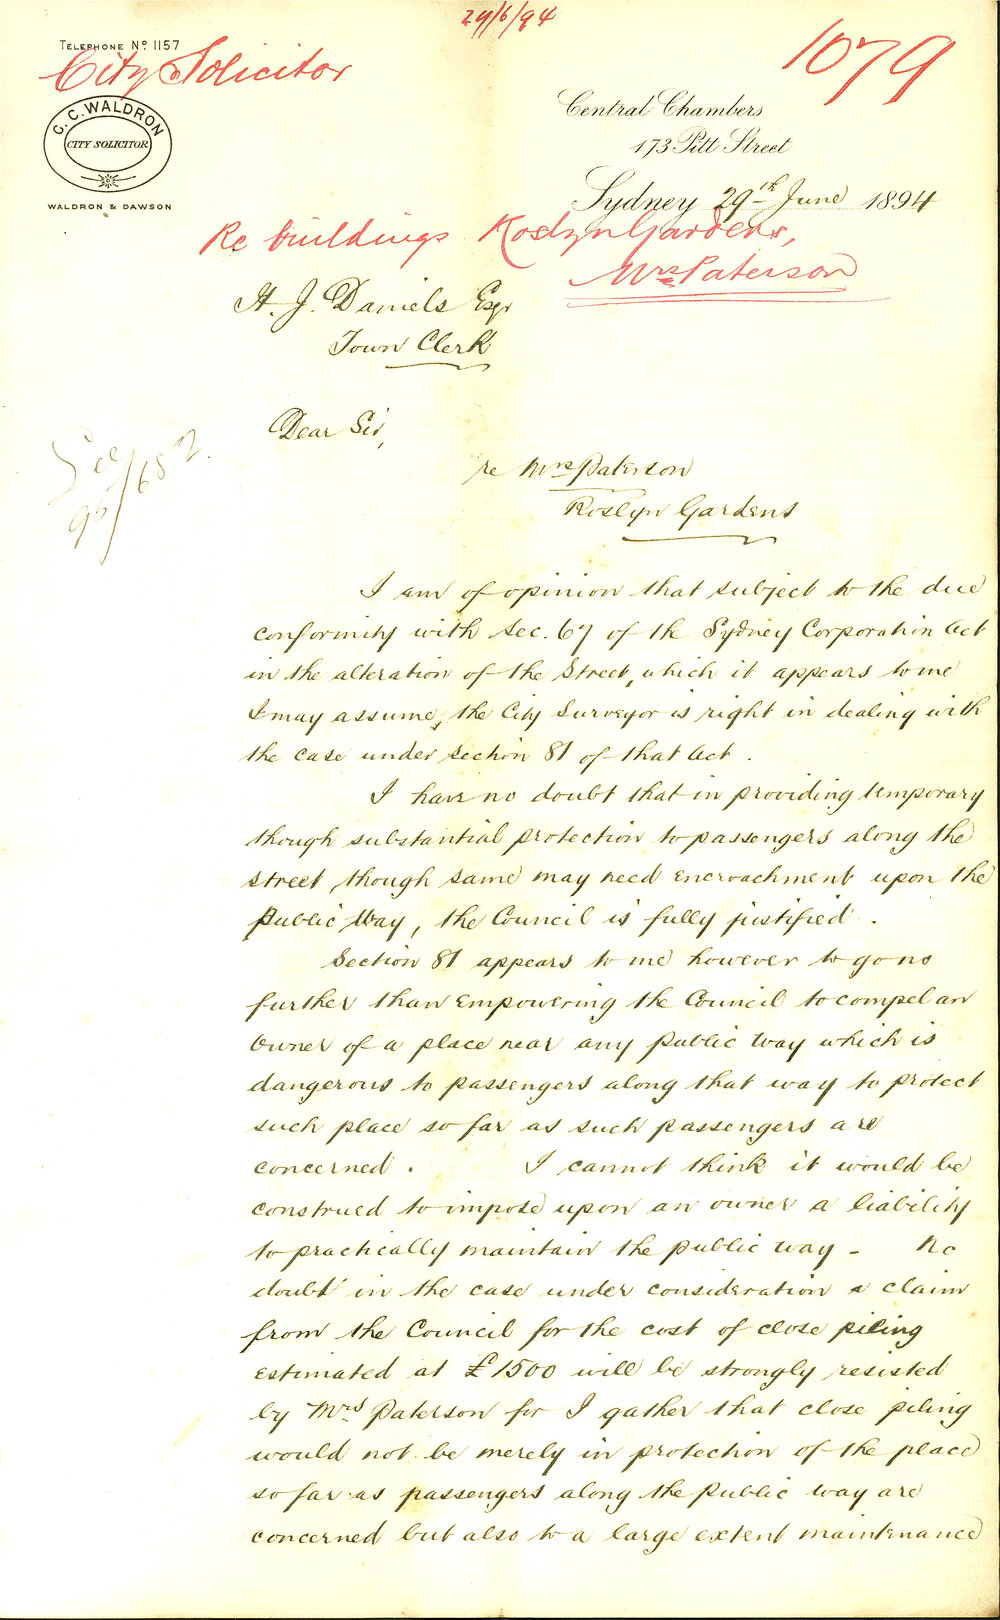 29/6/94
TELEPHONE No 1157
City Solicitor
1079
C. C. WALDRON
CITY SOLICITOR
WALDRON & DAWSON
Central Chambers
173 Pitt Street
Sydney 29th June 1894
Re buildings Roslyn Gardens,
Mrs Paterson
H. J. Daniels Esqr
Town Clerk
Dear Sir,
See
95/652
re Mrs Paterson
Roslyn Gardens
I am of opinion that subject to the due
conformity with Sec. 67 of the Sydney Corporation Act
in the alteration of the Street, which it appears to me
I may assume, the City Surveyor is right in dealing with
the case under section 81 of that Act.
I have no doubt that in providing temporary
though substantial protection to passengers along the
street, though same may need encroachment upon the
Public Way, the Council is fully justified.
Section 81 appears to me however to go no
further than empowering the Council to compel an
owner of a place near any public way which is
dangerous to passengers along that way to protect
such place so far as such passengers are
concerned. I cannot think it would be
construed to impose upon an owner a liability
to practically maintain the public way - No
doubt in the case under consideration a claim
from the Council for the cost of close piling
estimated at £1500 will be strongly resisted
by Mrs Paterson for I gather that close piling
would not be merely in protection of the place
so far as passengers along the Public way are
concerned but also to a large extent maintenance